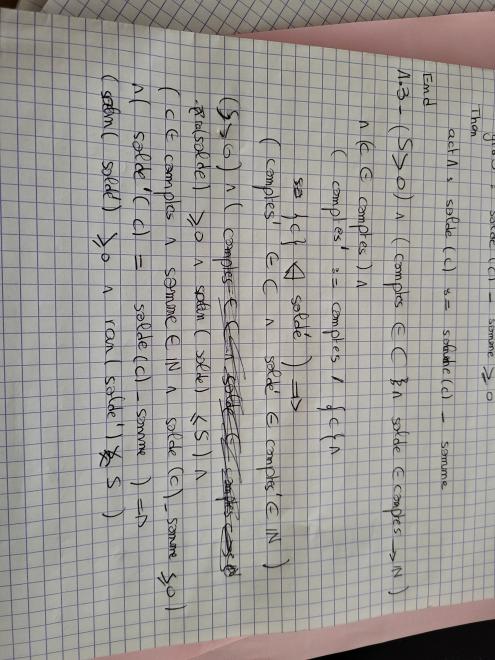 solde (c) - somme ⩾ 0
Then
act1 : solde (c) := solde (c) - somme
End
1.3 - (S>0) ∧ (comptes ∈ C ∧ solde ∈ comptes → N)
∧ (c ∈ comptes) ∧
( comptes' := comptes / {c} ∧
{c} ⩤ solde ) =>
(comptes' ∈ C ∧ solde' ∈ comptes' ∈ IN )
(S>0) ∧ (
(solde) ⩾ 0 ∧ (solde) ⩽ S) ∧
( c ∈ comptes ∧ somme ∈ IN ∧ solde (c) - somme ⩾ 0)
∧ ( solde' (c) = solde (c) - somme ) =>
( solde') ⩾ 0 ∧ ran( solde') ⩽ S )